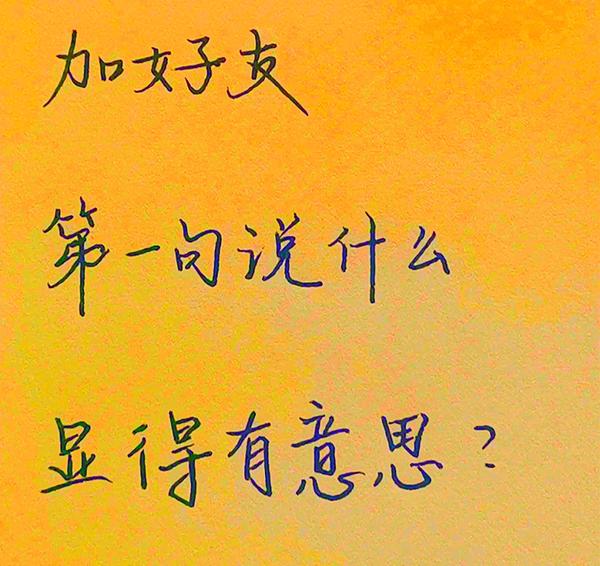 加好友
第一句说什么
显得有意思?